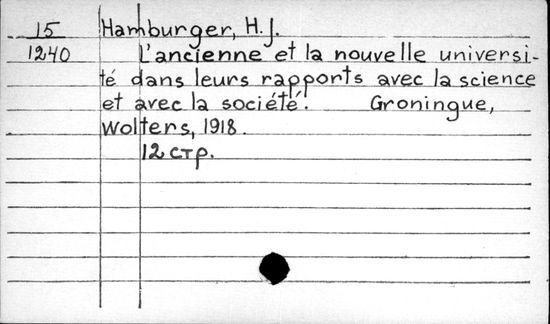 15 Hamburger, H. J.
1240 L'ancienne et la nouvelle universi-
té dans leurs rapports avec la science
et avec la société. Groningue,
Wolters, 1918.
12 стр.